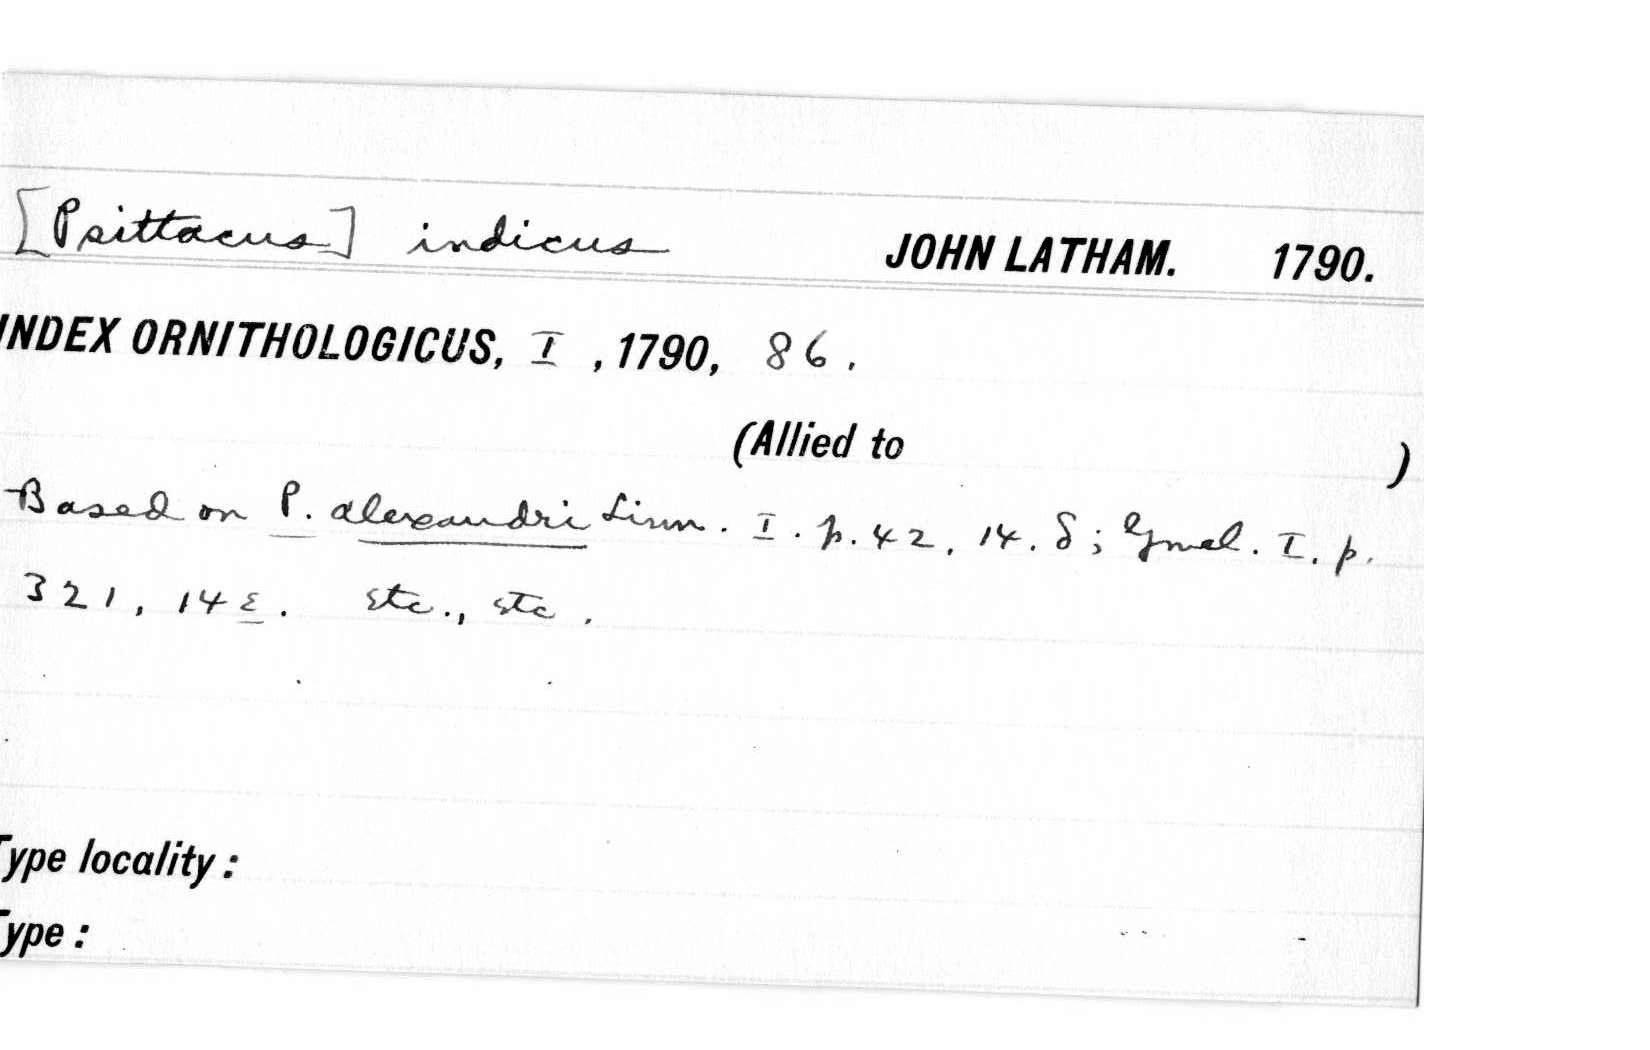 [Psittacus] indicus JOHN LATHAM. 1790.
INDEX ORNITHOLOGICUS, I , 1790, 86.
(Allied to )
Based on P. alexandri Linn. I. p. 42, 14. δ; Gmel. I. p.
321, 14 ε. etc., etc.
Type locality :
Type :